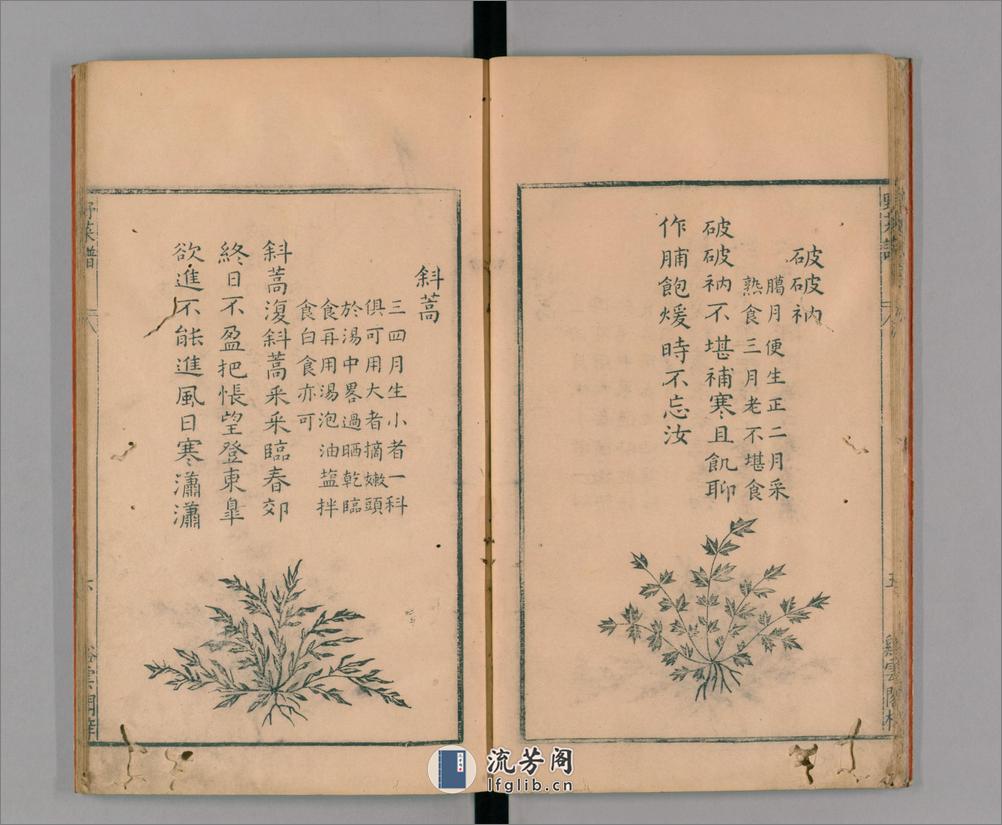 破破衲
臈月便生正二月采
熟食三月老不堪食
破破衲不堪補寒且飢聊
作脯飽煖時不忘汝
五
斜蒿
三四月生小者一科
俱可用大者摘嫩頭
於湯中畧過晒乾臨
食再用湯泡油塩拌
食白食亦可
斜蒿復斜蒿采采臨春郊
終日不盈把悵望登東皐
欲進不能進風日寒瀟瀟
野菜譜
流芳阁
lfglib.cn